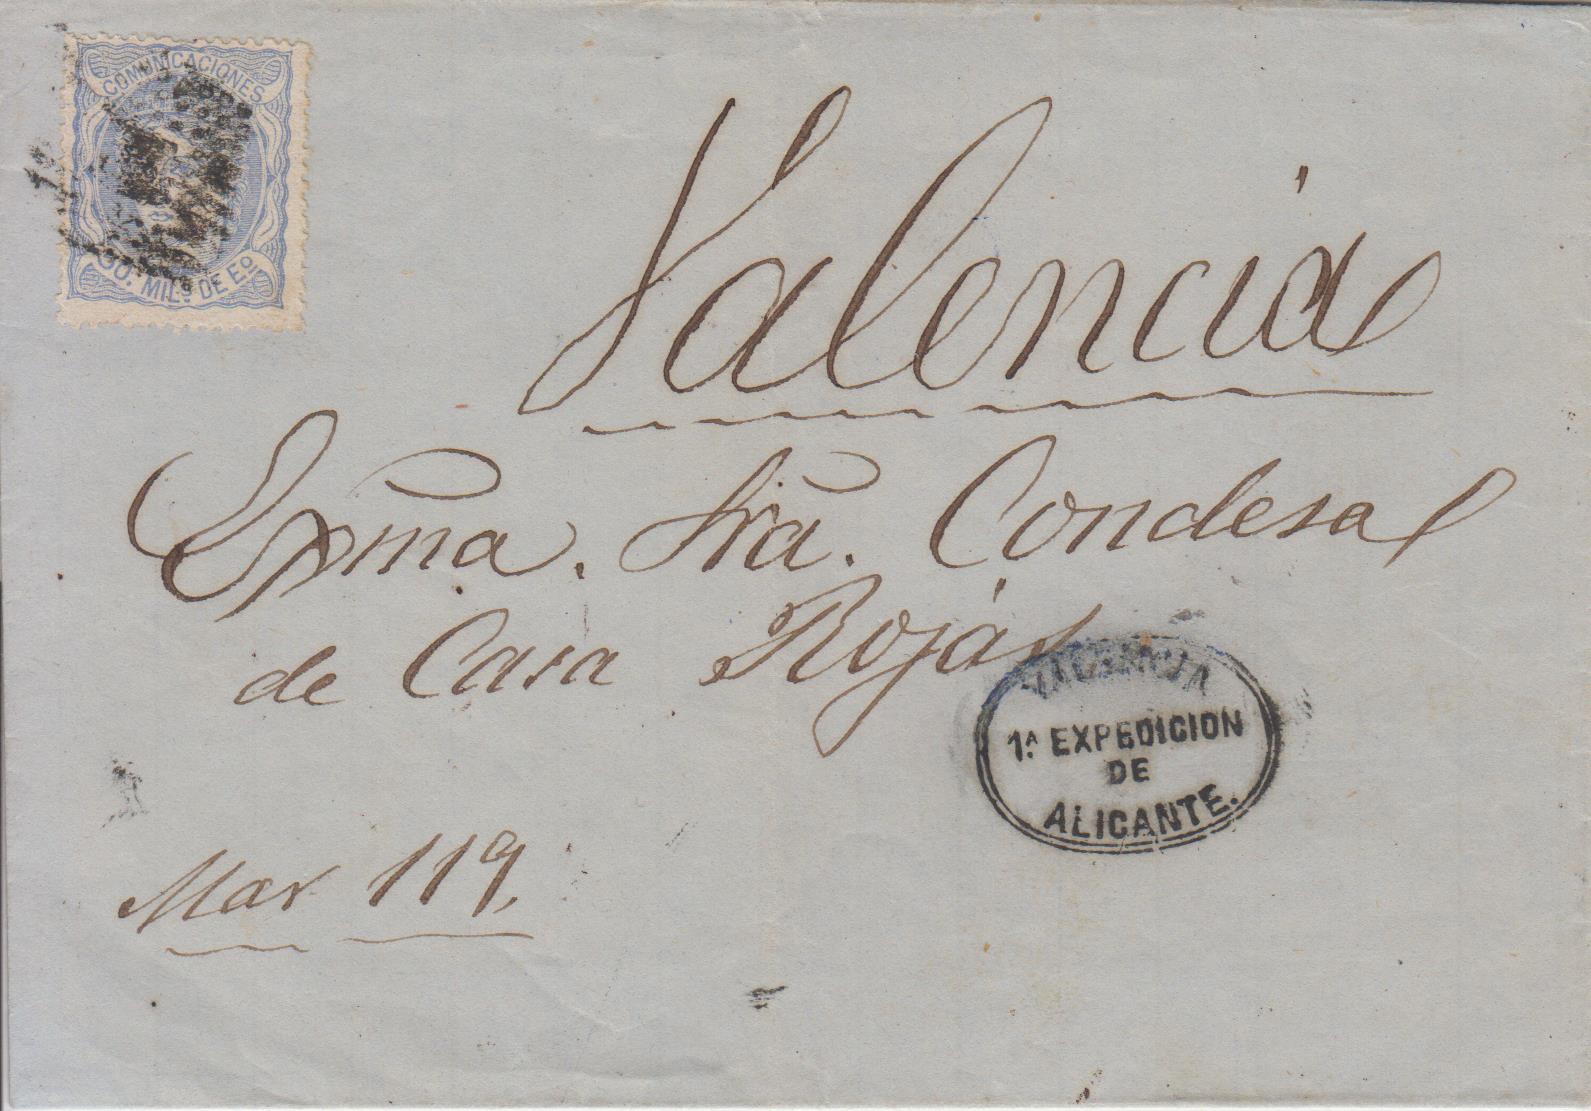 COMUNICACIONES
50. MILS. DE Eo
Valencia
Exma. Sra. Condesa
de Casa Rojas
VALENCIA
1.A EXPEDICION
DE
ALICANTE.
Mar 119.